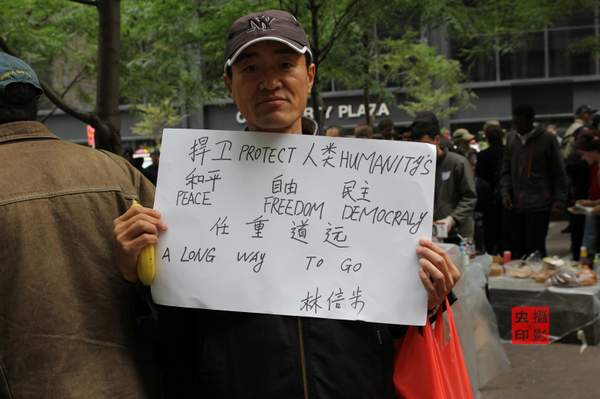 PLAZA
NY
捍卫 PROTECT 人类 HUMANITY'S
和平 自由 民主
PEACE FREEDOM DEMOCRALY
任 重 道 远
A LONG WAY TO GO
林信步
攝影
央印